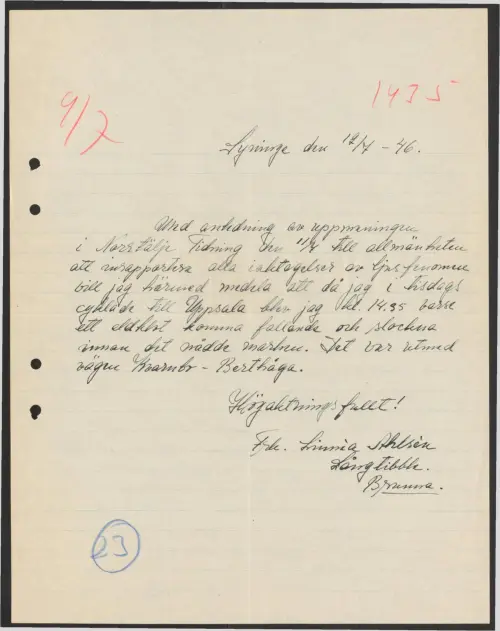 9/7
1935
Lyringe den 12/7 - 46.
Med anledning av uppmaningen
i Norrtälje Tidning den 11/7 till allmänheten
att inrapportera alla iakttagelser av ljusfenomen
vill jag härmed medela att då jag i tisdags
cyklade till Uppsala blev jag kl. 14.35 varse
ett eldklot komma fallande och slockna
innan det nådde marken. Det var utmed
vägen Kvarnbo - Berthåga.
Högaktningsfullt!
Frk. Linnéa Ahlsén
Långtibble.
Brunna.
23